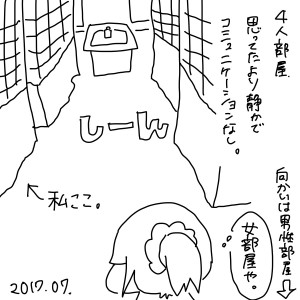 4人部屋
思ってたより静かで
コミュニケーションなし。
しーん
向かいは男性部屋
女部屋や。
私ここ。
2017.07.